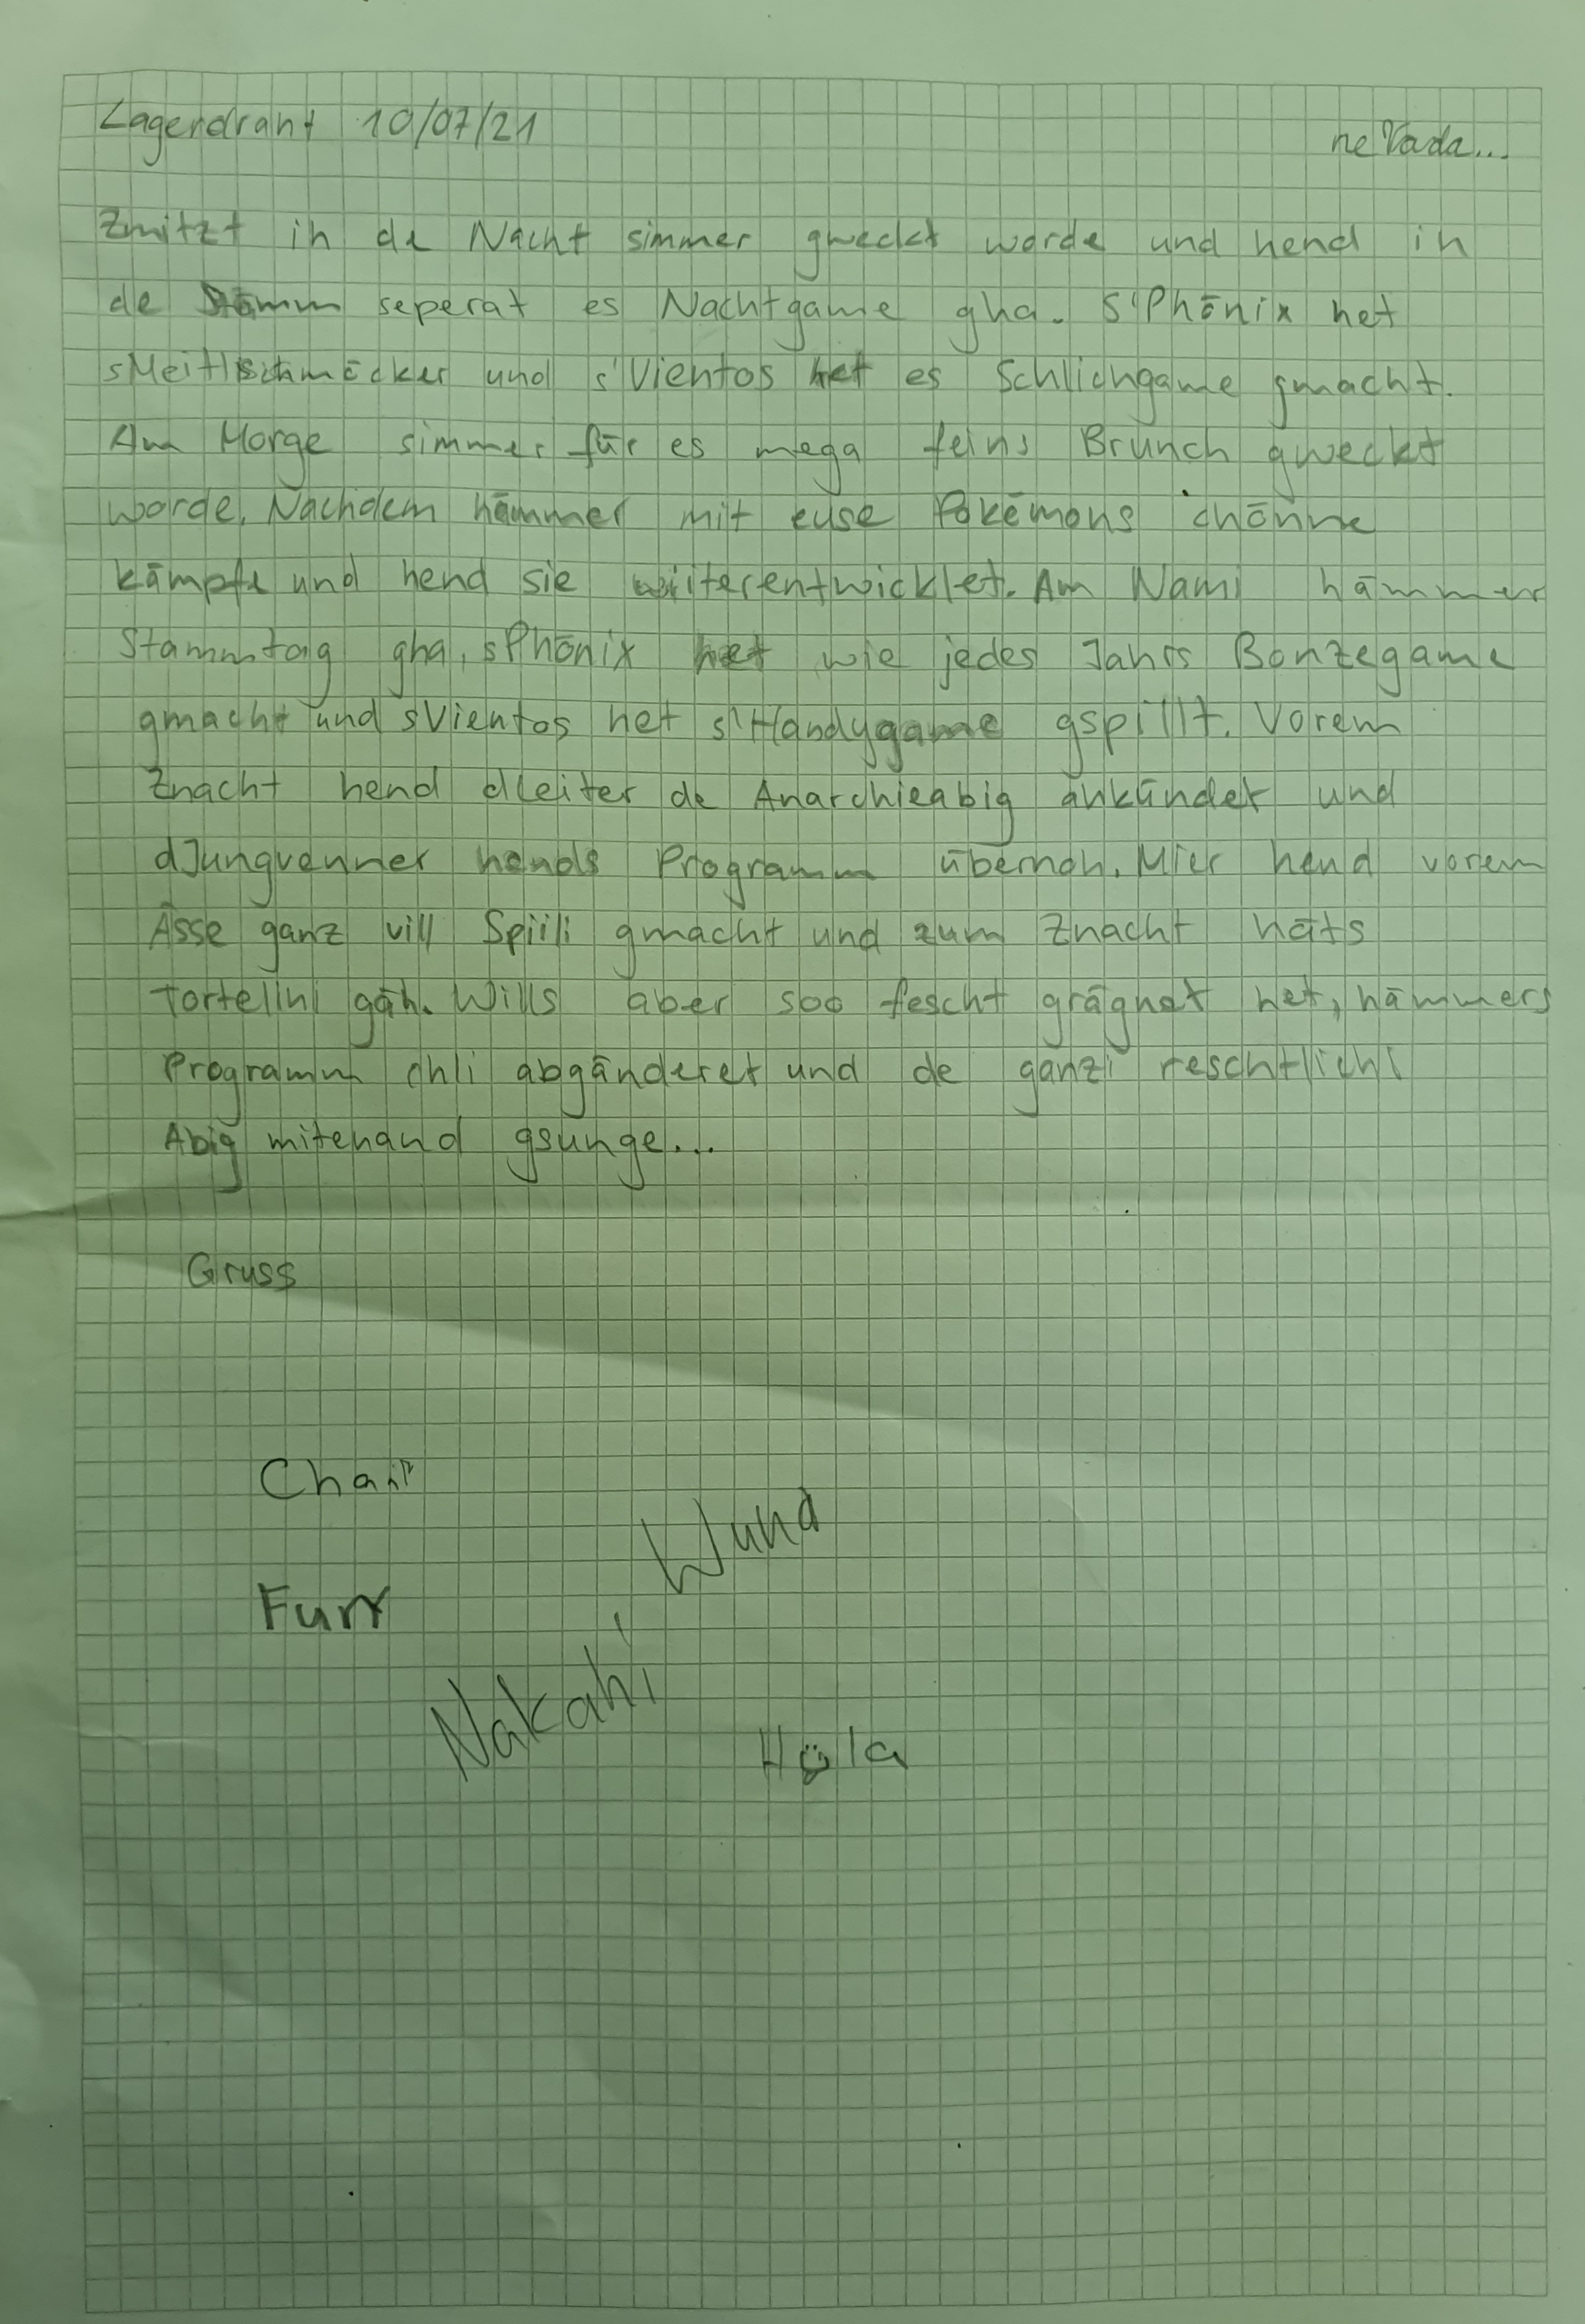 Lagerdraht 10/07/21
neVada...
Zmitzt in de Nacht simmer gweckt worde und hend in
de Stämm seperat es Nachtgame gha. S'Phönix het
sMeitlischmöcker und s'Vientos het es Schlichgame gmacht.
Am Morge simmer für es mega feins Brunch gweckt
worde. Nachdem hämmer mit euse Pokémons chönne
kämpfe und hend sie wiiterentwicklet. Am Nami hämmer
Stammtag gha, sPhönix het wie jedes Jahrs Bonzegame
gmacht und sVientos het s'Handygame gspillt. Vorem
Znacht hend dLeiter de Anarchieabig ankündet und
dJungvenner hends Programm übernoh. Mier hend vorem
Ässe ganz vill Spiili gmacht und zum Znacht häts
Tortelini gäh. Wills aber soo fescht grägnet het, hämmers
Programm chli abgänderet und de ganzi reschtlichi
Abig mitenand gsunge...
Gruss
Wund
Furr
Nakahi
Hüla